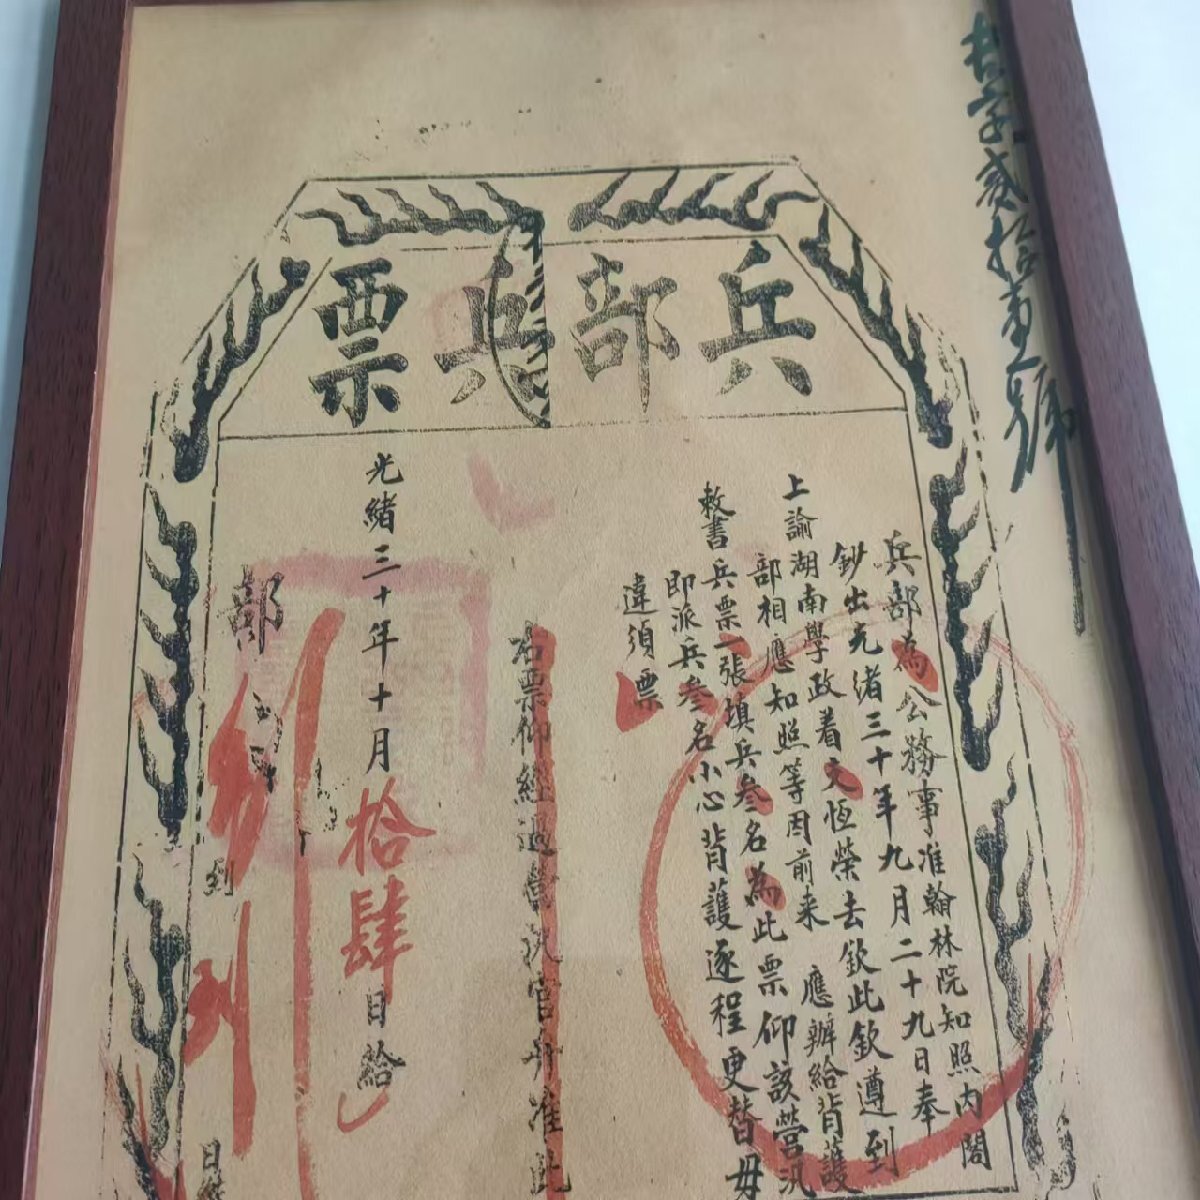 兵部兵票
兵部為公務事准翰林院知照内閣
鈔出光緒三十年九月二十九日奉
上諭湖南學政着支恆榮去欽此欽遵到
部相應知照等因前来 應辦給背護
敕書兵票一張填兵叁名為此票仰該營汛
即派兵叁名小心背護逐程更替毋
違須票
右票仰經過營汛官弁准此
光緒三十年十月拾肆日給
部
到
日